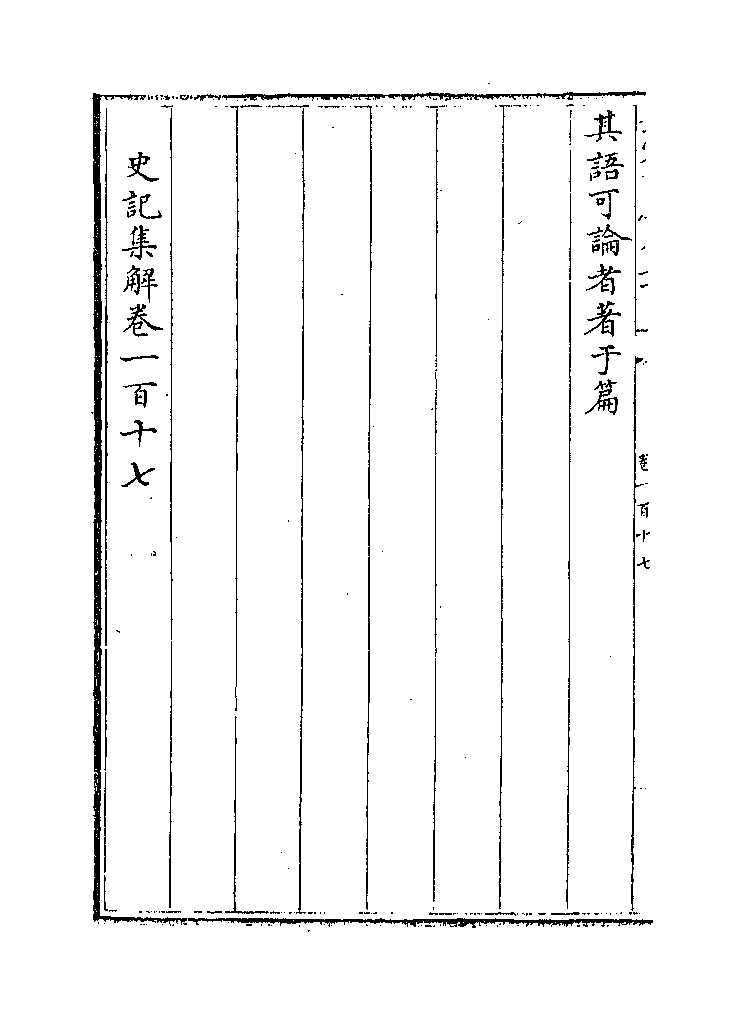 其語可論者著于篇
史記集解卷一百十七
卷一百十七